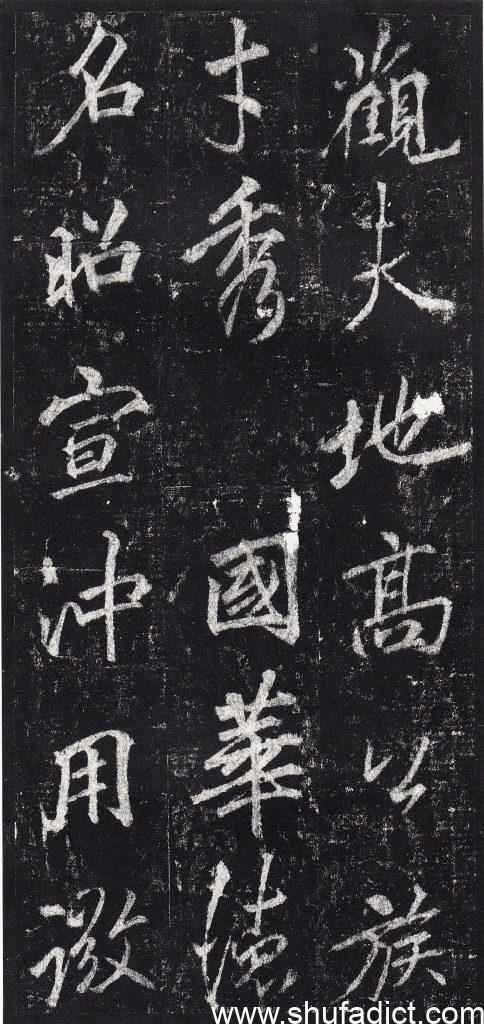 觀夫地高公族
才秀國華德
名昭宣沖用微
www.shufadict.com